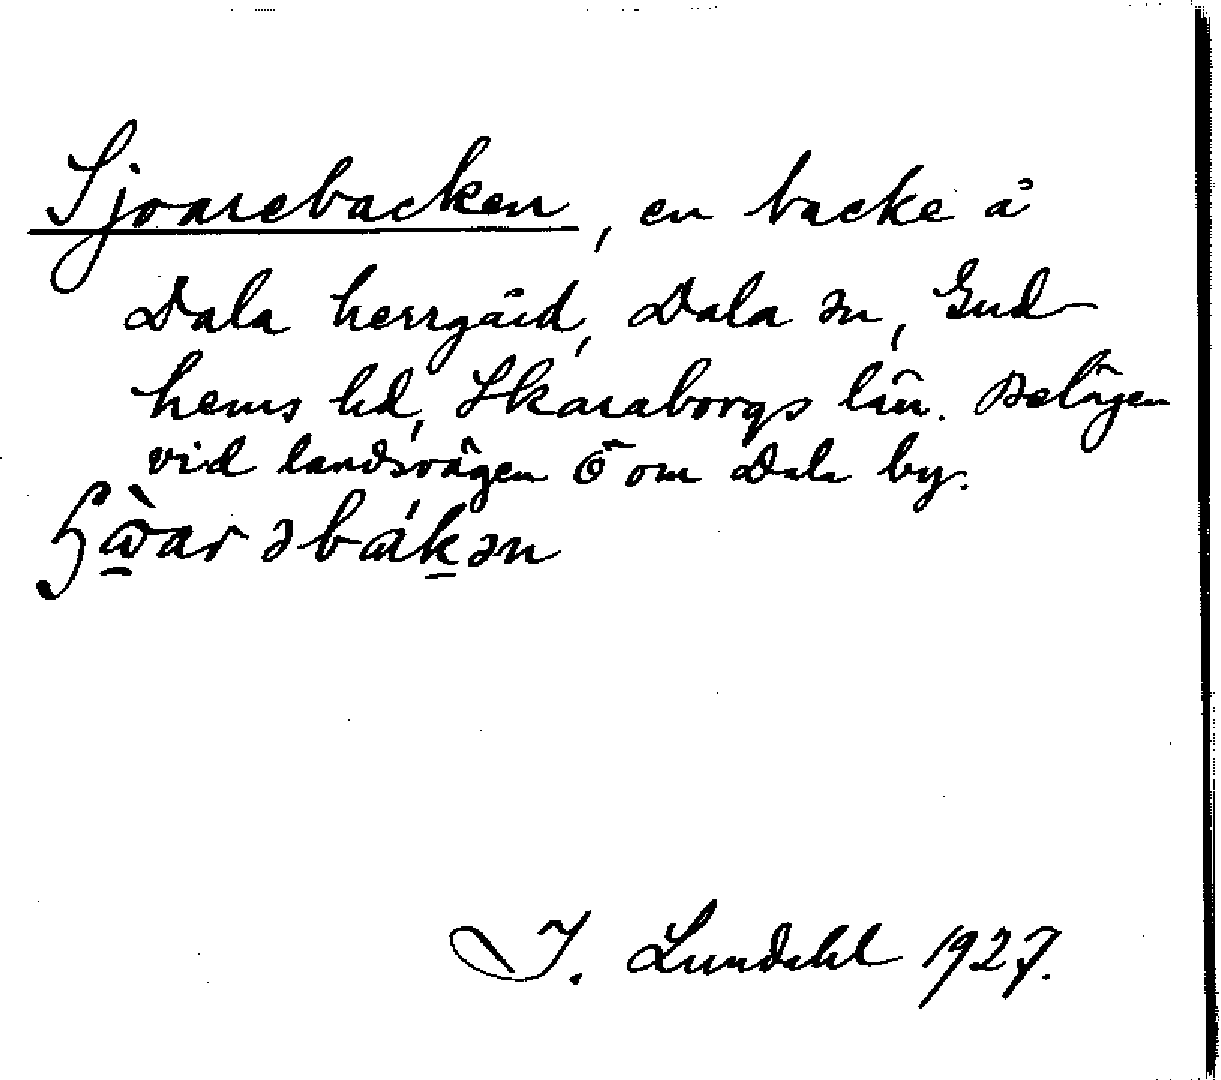 Sjoarebacken, en backe å
Dala herrgård, Dala sn, Gud-
hems hd, Skaraborgs län. Belägen
vid landsvägen Ö om Dala by.
I. Lundahl 1927.